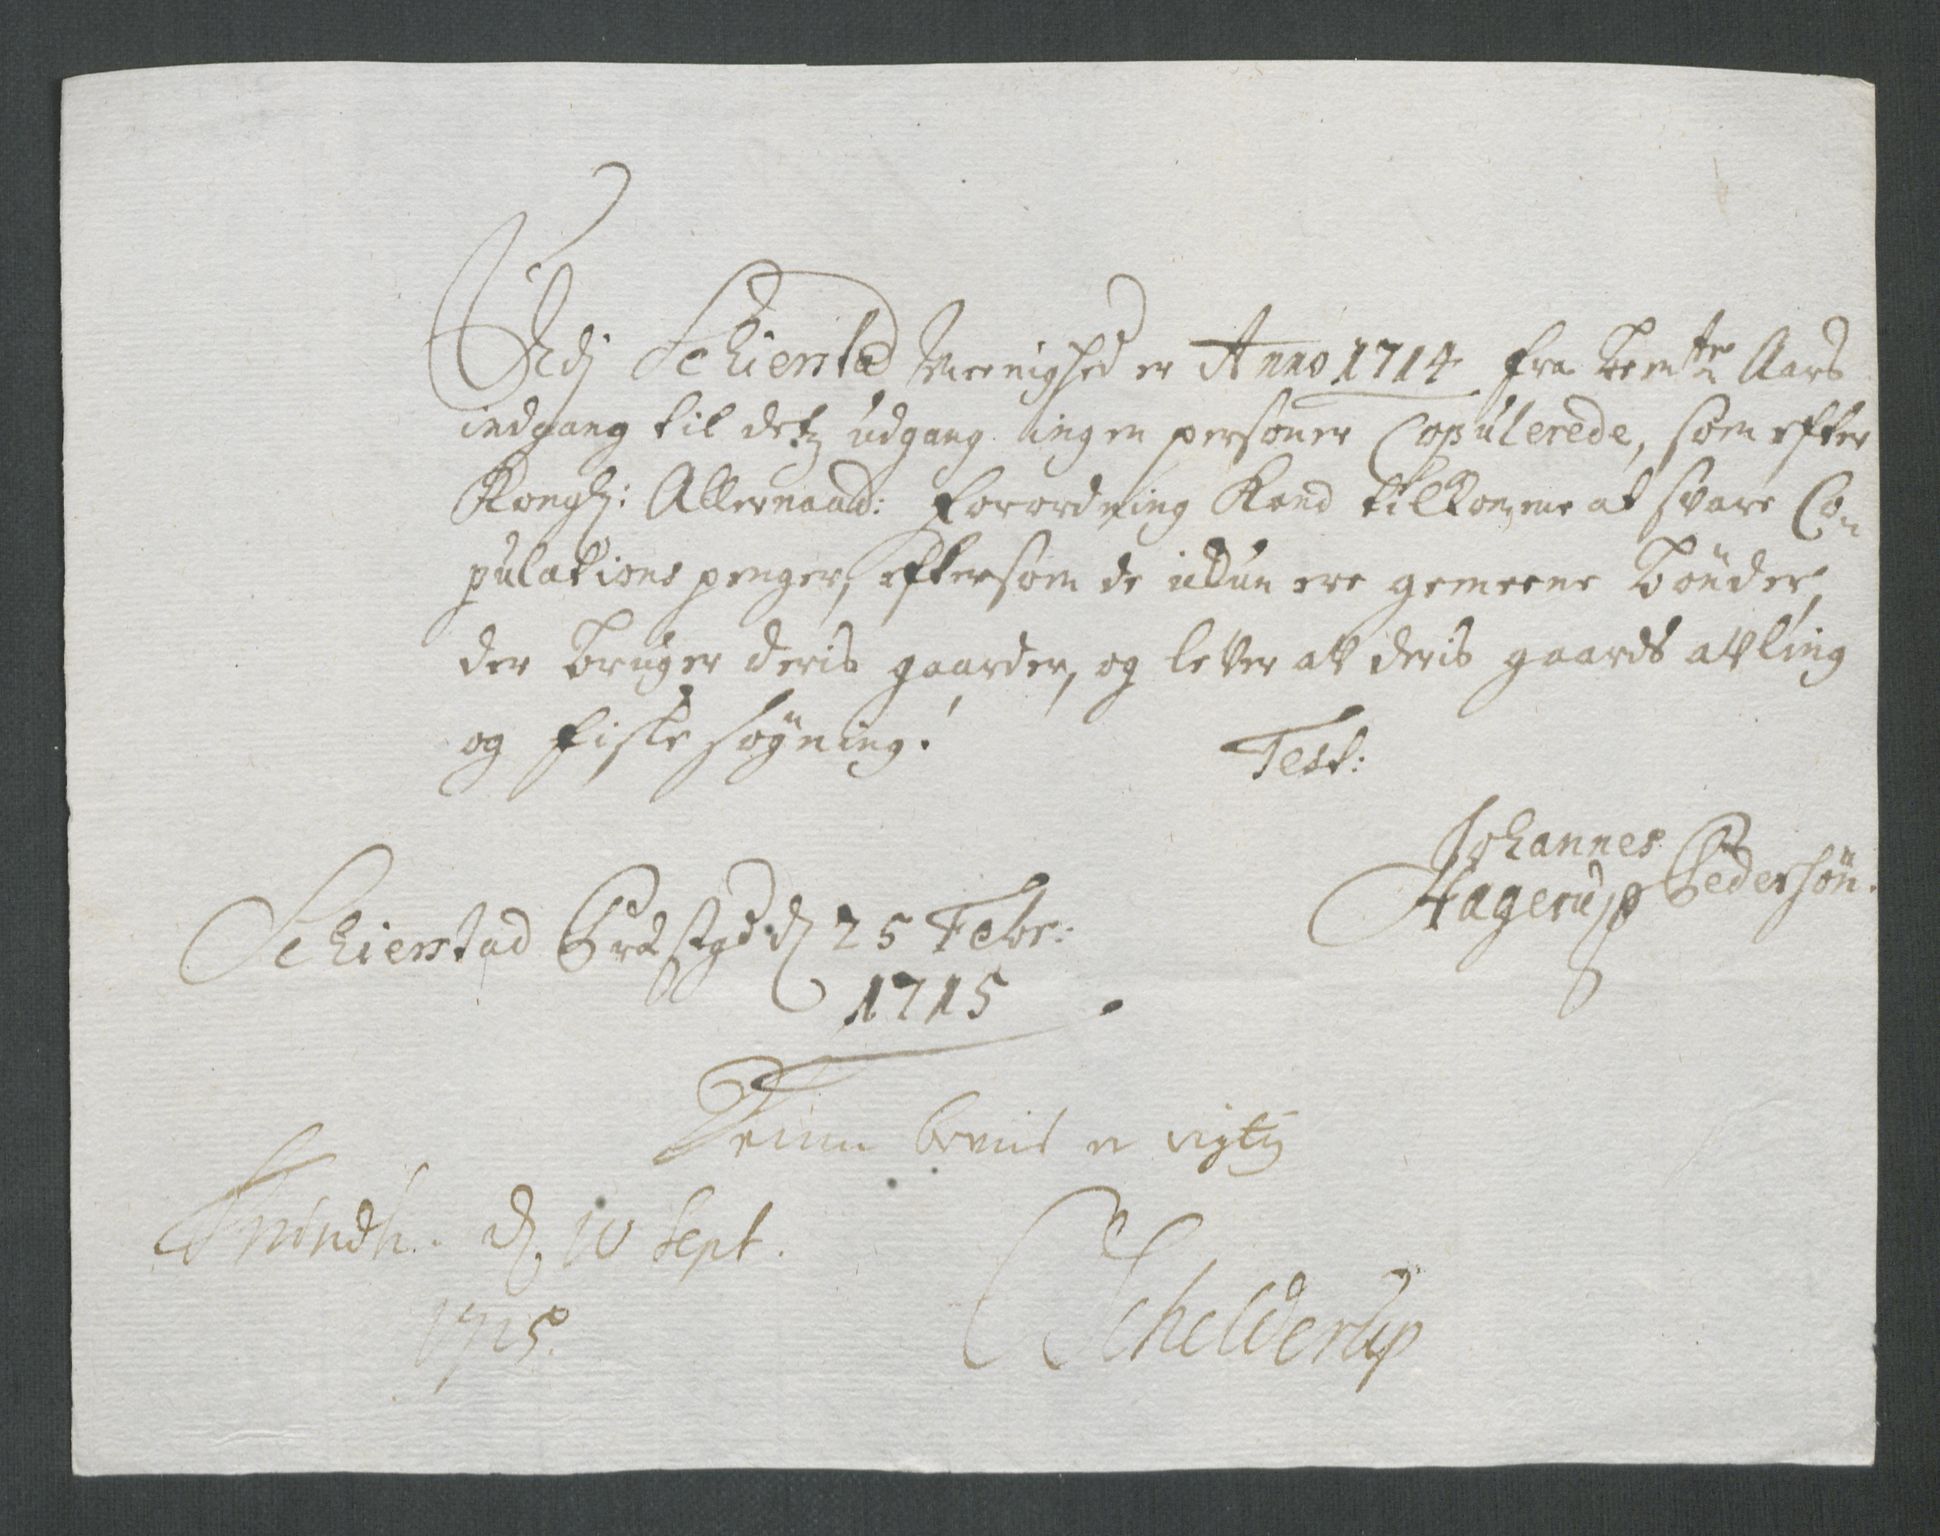 Udj Schierstad Meenighed er Anno 1714 fra bemte Aars
indgang til detz udgang ingen personer Copulerede, som efter
Kongl: Allernaad: forordning kand tilkomme at svare Co-
pulations penger, eftersom de ickun ere gemeene bönder,
der bruger deris gaarder, og lever aff deris gaards affling
og fiske søgning.
Test:
Johannes
Hagerup Pedersøn.
Schierstad Præstgd d 25 Febr:
1715
Denne beviis er rigtig
Trondh. d. 10 Sept.
1715.
Schelderup